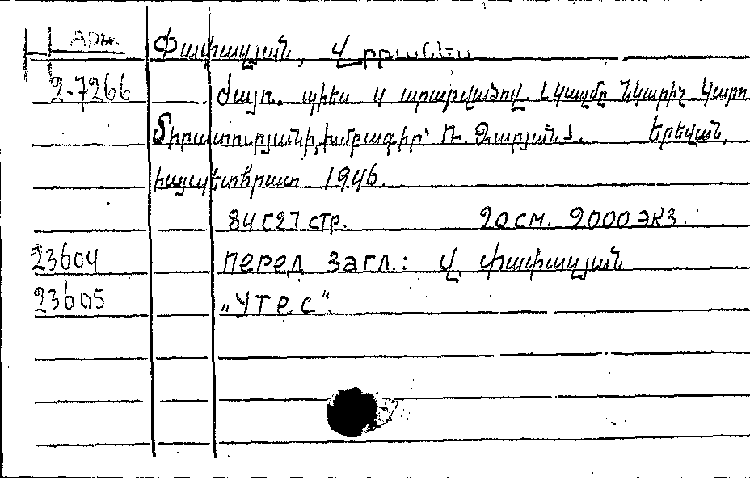 Арм. Փափազյան, Վրթանես
2-7266 Ժայռ. պիես 4 արարվածով. [Կազմը նկարիչ Կարո
Միրատուրյանի, խմբագիր՝ Ռ. Զարյան]. Երեվան,
հայպետհրատ 1946.
84 с 27 стр. 20 см. 2000 экз
23604 перед загл.: Վ. Փափազյան
23605 "Утес".